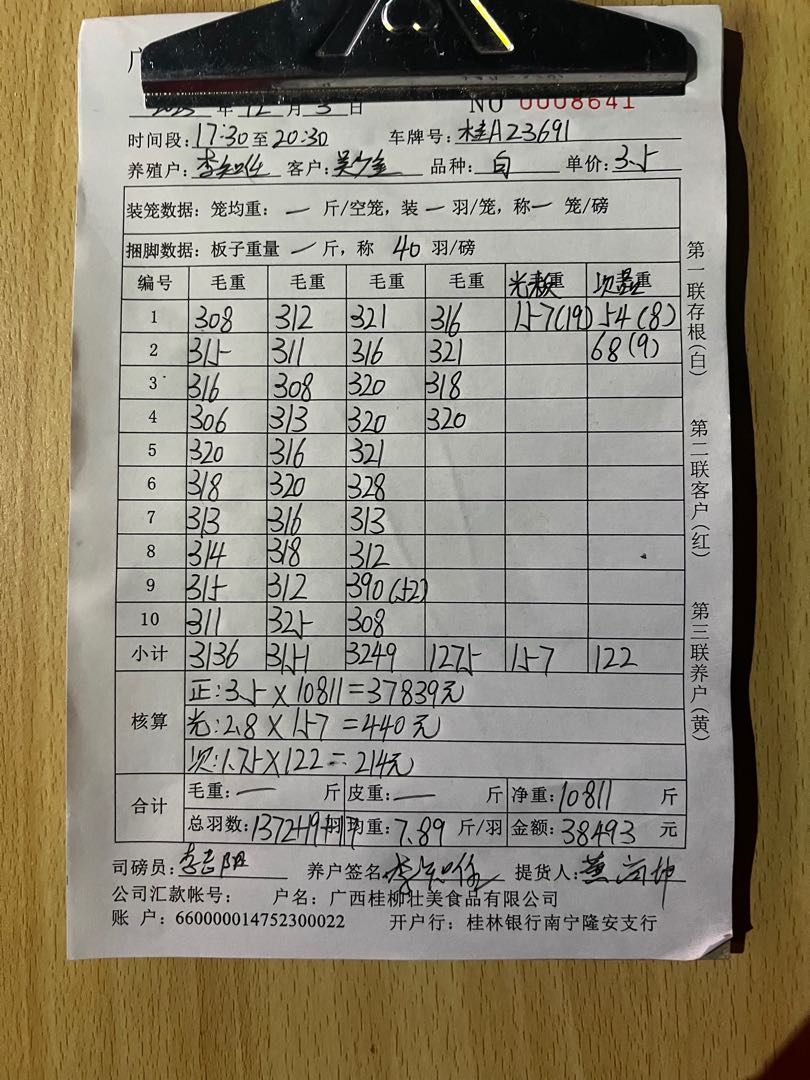 广
2025年12月3日 NO 0008641
时间段:17:30至20:30 车牌号:桂A23691
养殖户: 客户:吴少金 品种:白 单价:3.5
装笼数据:笼均重:一斤/空笼,装一羽/笼,称一笼/磅
捆脚数据:板子重量一斤,称40羽/磅
编号 毛重 毛重 毛重 毛重 重 重
1 308 312 321 316 157(19) 54(8)
2 315 311 316 321 68(9)
3 316 308 320 318
4 306 313 320 320
5 320 316 321
6 318 320 328
7 313 316 313
8 314 318 312
9 315 312 390(52)
10 311 325 308
小计 3136 3151 3249 1275 157 122
核算
正:3.5×10811=37839元
光:2.8×157=440元
次:1.75×122=214元
合计
毛重:一斤 皮重:一斤 净重:10811斤
总羽数:1372+19+17羽 均重:7.89斤/羽 金额:38493元
司磅员:李吉阳 养户签名: 提货人:
公司汇款帐号: 户名:广西桂柳壮美食品有限公司
账 户:660000014752300022 开户行:桂林银行南宁隆安支行
第一联存根(白)
第二联客户(红)
第三联养户(黄)